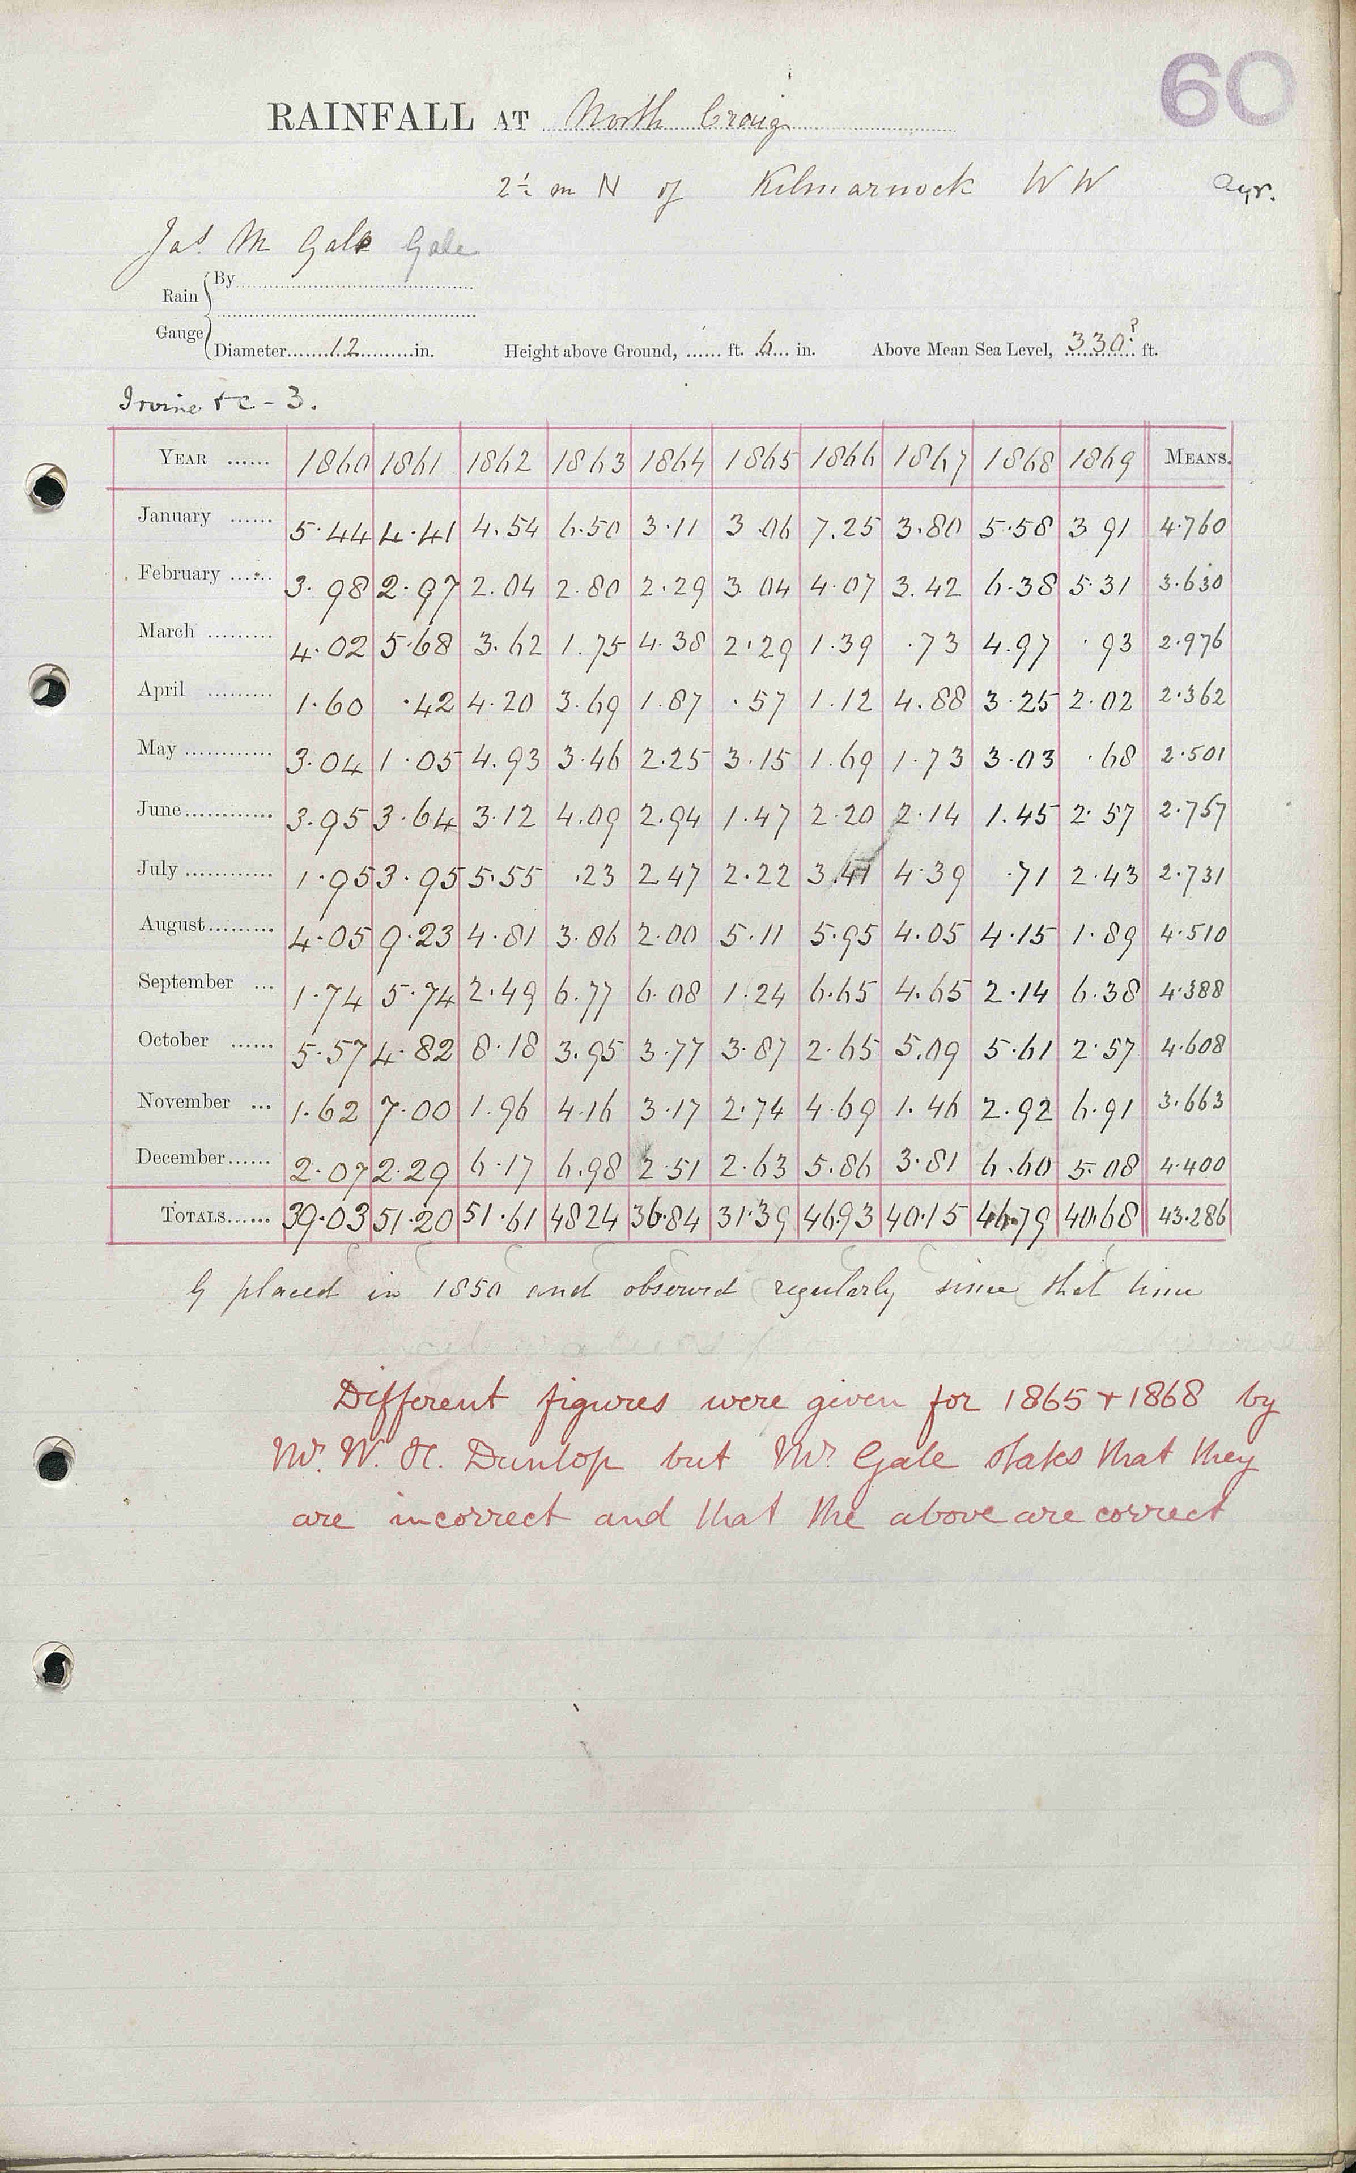 60
RAINFALL AT North Craig
2½ m N of Kilmarnock W W Ayr.
Jas. M Gale Gale
Rain Gauge { By
Diameter 12 in. Height above Ground, ft. 6 in. Above Mean Sea Level, 330? ft.
Irvine &c - 3.
YEAR 1860 1861 1862 1863 1864 1865 1866 1867 1868 1869 MEANS.
January 5.44 4.41 4.54 6.50 3.11 3.06 7.25 3.80 5.58 3.91 4.760
February 3.98 2.97 2.04 2.80 2.29 3.04 4.07 3.42 6.38 5.31 3.630
March 4.02 5.68 3.62 1.75 4.38 2.29 1.39 .73 4.97 .93 2.976
April 1.60 .42 4.20 3.69 1.87 .57 1.12 4.88 3.25 2.02 2.362
May 3.04 1.05 4.93 3.46 2.25 3.15 1.69 1.73 3.03 .68 2.501
June 3.95 3.64 3.12 4.09 2.94 1.47 2.20 2.14 1.45 2.57 2.757
July 1.95 3.95 5.55 .23 2.47 2.22 3.41 4.39 .71 2.43 2.731
August 4.05 9.23 4.81 3.86 2.00 5.11 5.95 4.05 4.15 1.89 4.510
September 1.74 5.74 2.49 6.77 6.08 1.24 6.65 4.65 2.14 6.38 4.388
October 5.57 4.82 8.18 3.95 3.77 3.87 2.65 5.09 5.61 2.57 4.608
November 1.62 7.00 1.96 4.16 3.17 2.74 4.69 1.46 2.92 6.91 3.663
December 2.07 2.29 6.17 6.98 2.51 2.63 5.86 3.81 6.60 5.08 4.400
TOTALS 39.03 51.20 51.61 48.24 36.84 31.39 46.93 40.15 46.79 40.68 43.286
G placed in 1850 and observed regularly since that time
Different figures were given for 1865 + 1868 by
Mr. W. H. Dunlop but Mr. Gale states that they
are incorrect and that the above are correct